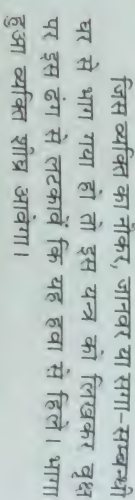 जिस व्यक्ति का नौकर, जानवर या सगा-सम्बन्धी
घर से भाग गया हो तो इस यन्त्र को लिखकर वृक्ष
पर इस ढंग से लटकावें कि यह हवा से हिले। भागा
हुआ व्यक्ति शीघ्र आवेगा।